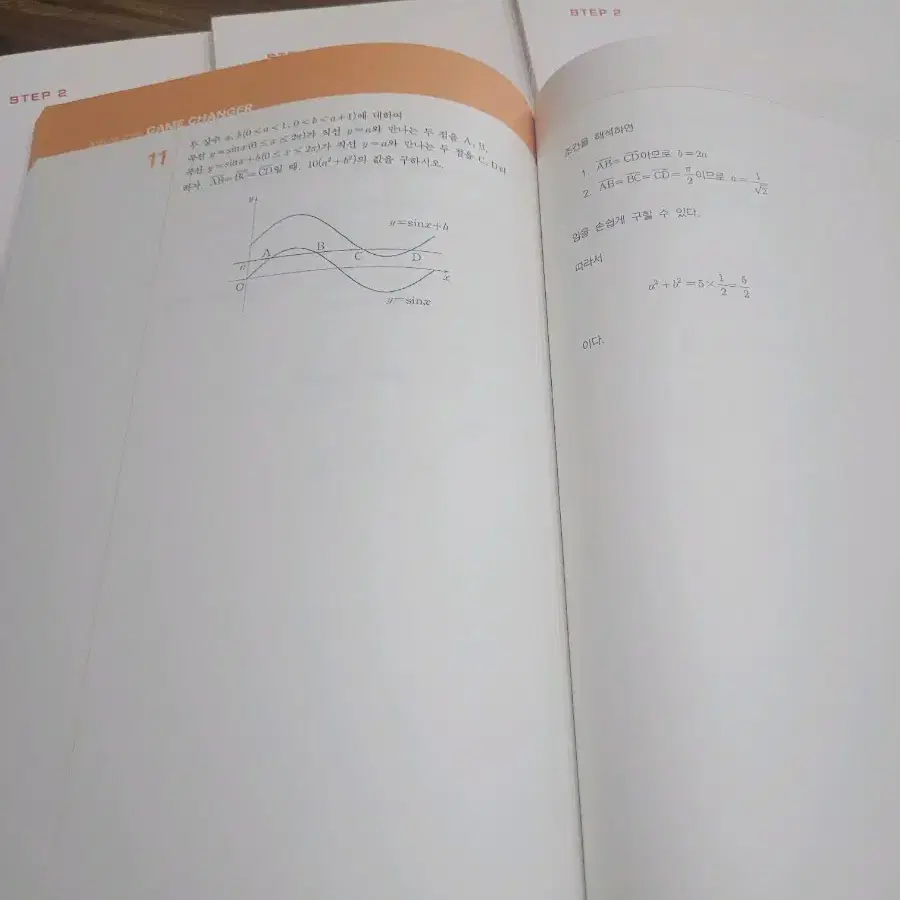 STEP 2
STEP 2
GAME CHANGER
11
두 실수 a, b(0<a<1, 0<b<a+1)에 대하여
곡선 y=sinx(0≤x≤2π)가 직선 y=a와 만나는 두 점을 A, B,
곡선 y=sinx+b(0≤x≤2π)가 직선 y=a와 만나는 두 점을 C, D라
하자. AB=BC=CD일 때, 10(a²+b²)의 값을 구하시오.
y
y=sinx+b
A B C D
a
O
x
y=sinx
조건을 해석하면
1. AB=CD이므로 b=2a
2. AB=BC=CD=π/2이므로 a=1/√2
임을 손쉽게 구할 수 있다.
따라서
a²+b²=5×1/2=5/2
이다.